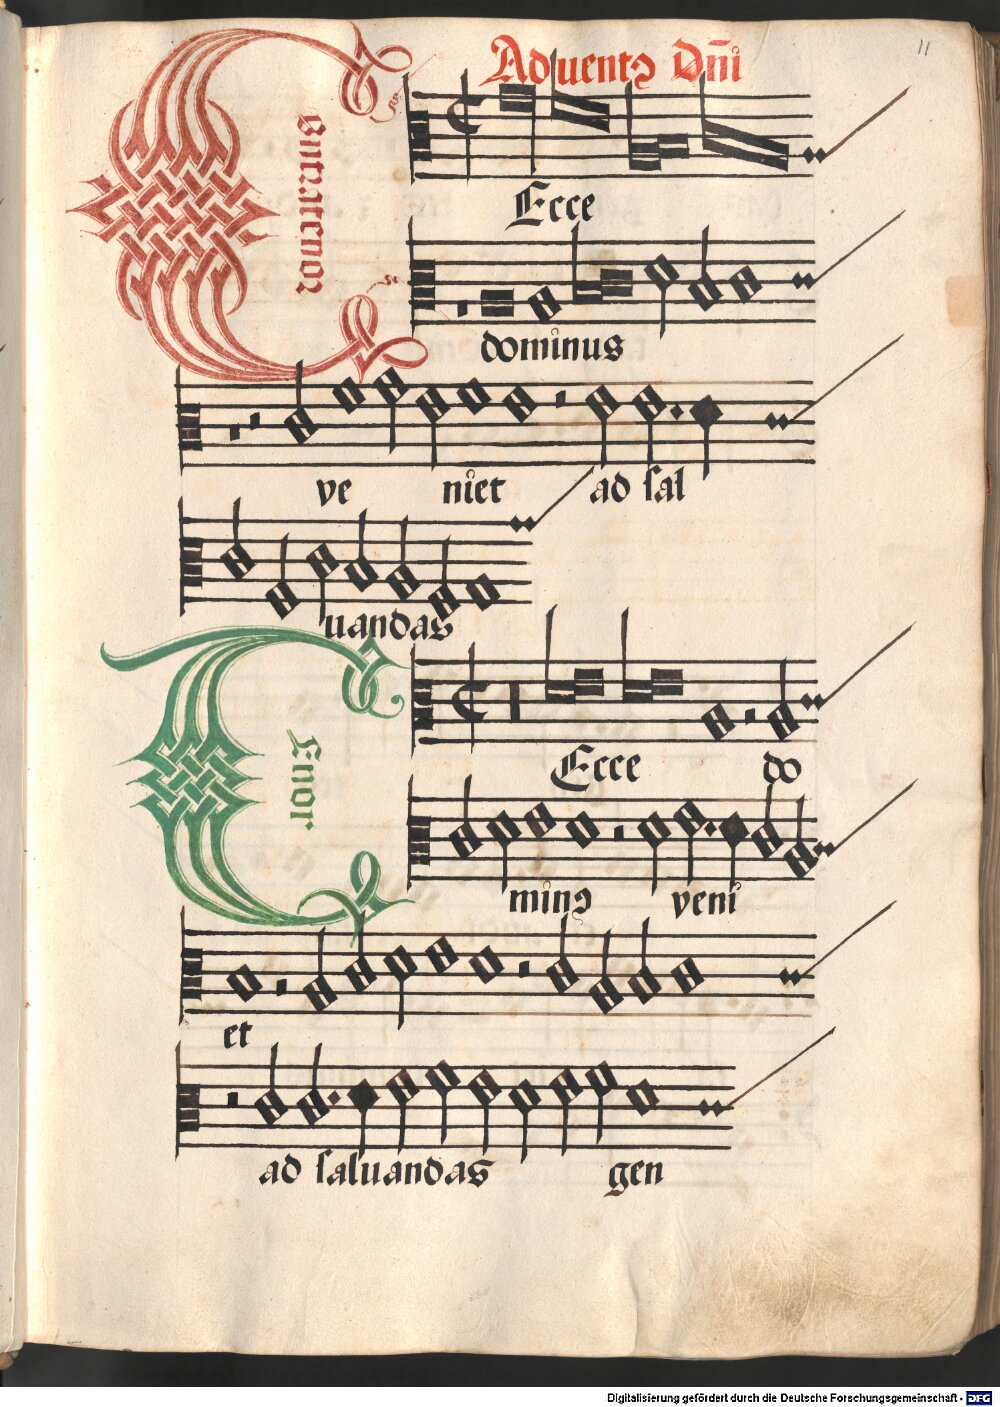 11
Aduentꝰ Dn̄i
Contratenor
Ecce
dominus
ve niet ad sal
uandas
Tenor
Ecce do
minꝰ veni
et
ad saluandas gen
Digitalisierung gefördert durch die Deutsche Forschungsgemeinschaft - DFG